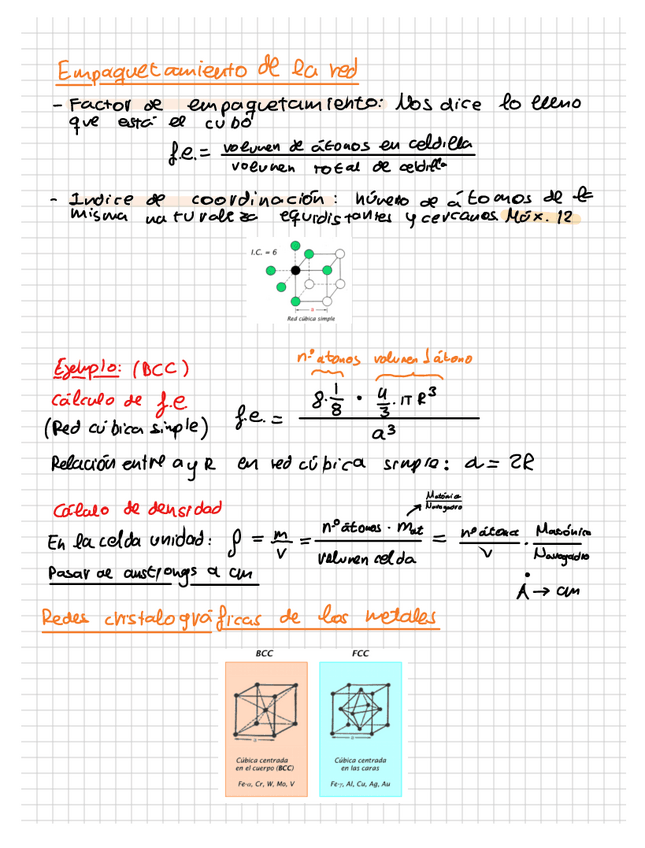 Empaquetamiento de la red
- Factor de empaquetamiento: Nos dice lo lleno
que está el cubo
f.e. = volumen de átomos en celdilla / volumen total de celdilla
- Indice de coordinación: número de átomos de la
misma naturaleza equidistantes y cercanos. Máx. 12
I.C. = 6
a
Red cúbica simple
Ejemplo: (BCC)
nº atomos volumen 1 átomo
Cálculo de f.e
(Red cúbica simple)
f.e. = 8·1/8 · 4/3·πR³ / a³
Relación entre a y R en red cúbica simple: a = 2R
Cálculo de densidad
Matómica / Navogadro
En la celda unidad: ρ = m/V = nº átomos · Mat / volumen celda = nº átomos / V · Matómica / Navogadro
Pasar de amstrongs a cm
Å → cm
Redes cristalográficas de los metales
BCC FCC
a a
Cúbica centrada
en el cuerpo (BCC)
Fe-α, Cr, W, Mo, V
Cúbica centrada
en las caras
Fe-γ, Al, Cu, Ag, Au